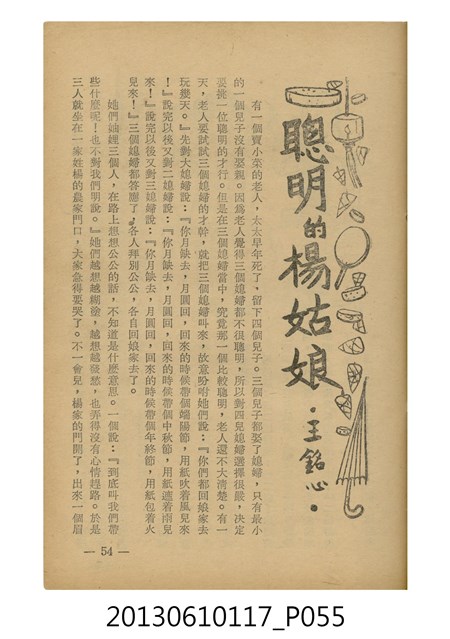 聰明的楊姑娘
·王銘心·
有一個賣小菜的老人，太太早年死了，留下四個兒子。三個兒子都娶了媳婦，只有最小
的一個兒子沒有娶親。因為老人覺得三個媳婦都不很聰明，所以對四兒媳婦選擇很嚴，決定
要挑一位聰明的才行。但是在三個媳婦當中，究竟那一個比較聰明，老人還不大清楚。有一
天，老人要試試三個媳婦的才幹，就把三個媳婦叫來，故意吩咐她們說：『你們都回娘家去
玩幾天。』先對大媳婦說：『你月缺去，月圓回，回來的時候帶個端陽節，用紙吹着風兒來
！』說完以後又對二媳婦說：『你月缺去，月圓回，回來的時候帶個中秋節，用紙遮着雨兒
來！』說完以後又對三媳婦說：『你月缺去，月圓回，回來的時候帶個年終節，用紙包着火
兒來！』三個媳婦都答應了，各人拜別公公，各自回娘家去了。
她們妯娌三個人，在路上想想公公的話，不知道是什麼意思。一個說：『到底叫我們帶
些什麼呢！也不對我們明說。』她們越想越糊塗，越想越發愁，也弄得沒有心情趕路。於是
三人就坐在一家姓楊的農家門口，大家急得要哭了。不一會兒，楊家的門開了，出來一個眉
— 54 —
20130610117_P055